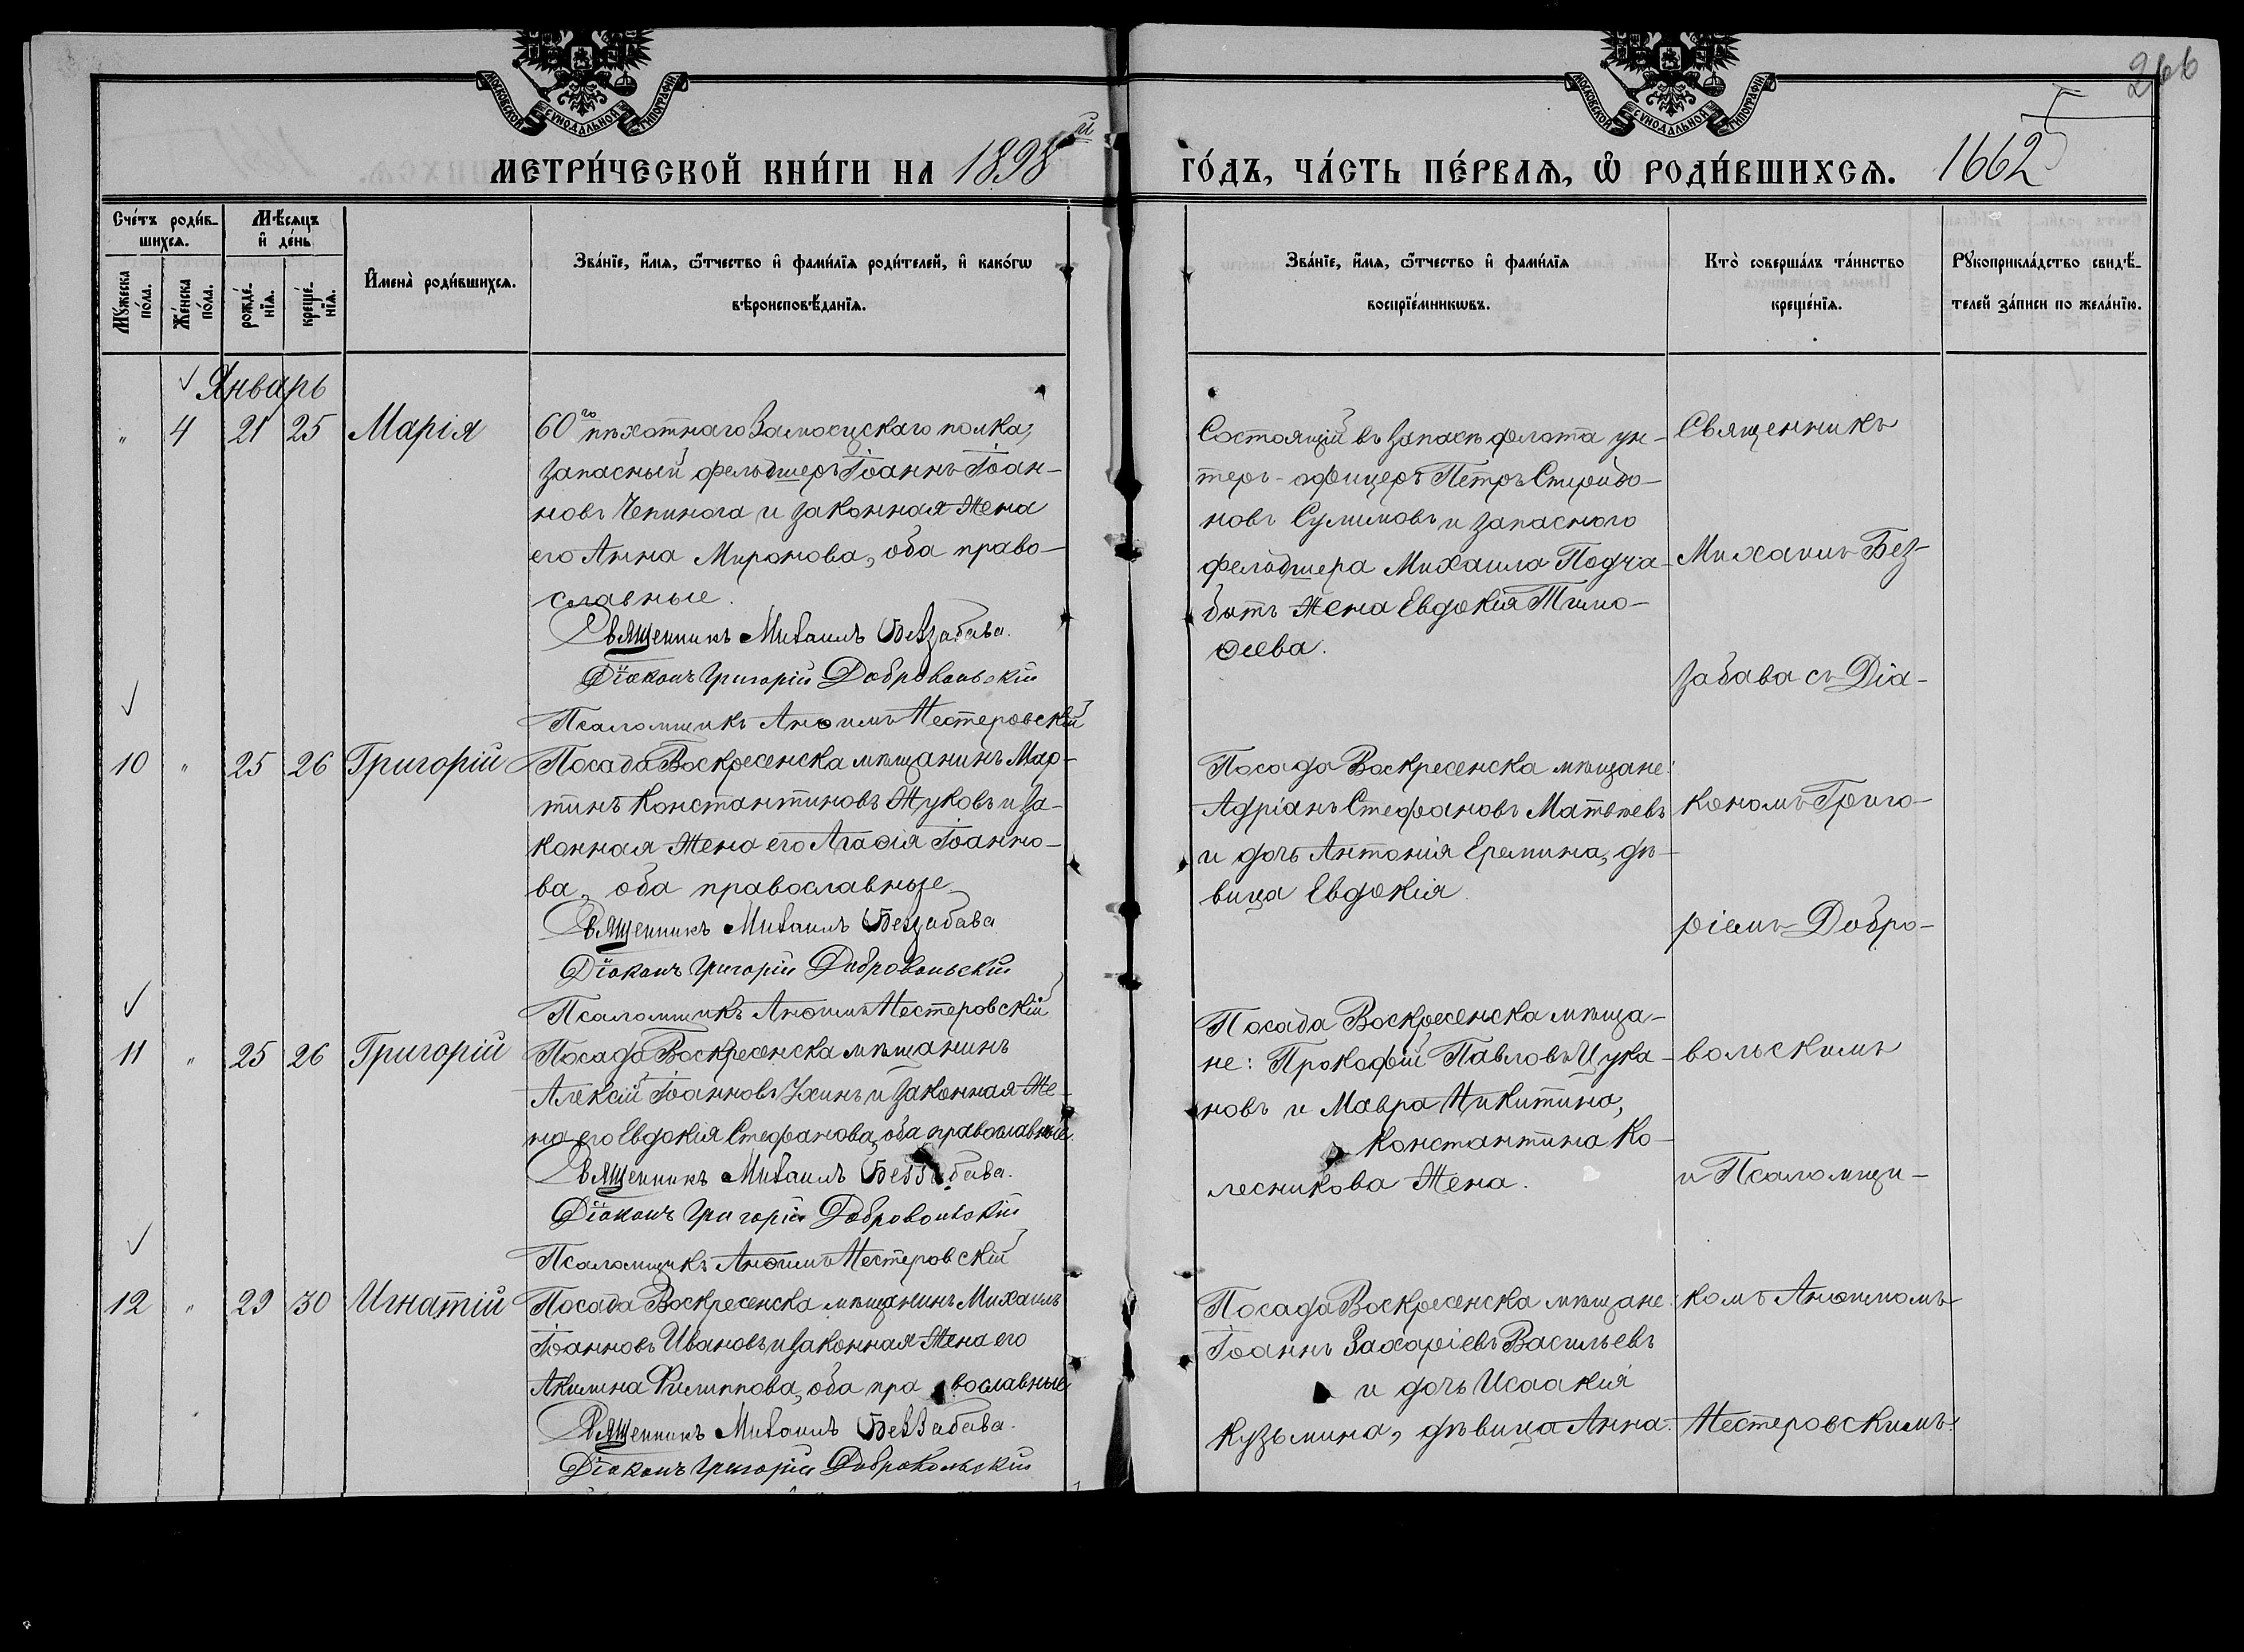 МОСКОВСКОЙ СѴНОДАЛЬНОЙ ТИПОГРАФІИ
МОСКОВСКОЙ СѴНОДАЛЬНОЙ ТИПОГРАФІИ
266
МЕТРИ́ЧЕСКОЙ КНИ́ГИ НА 1898й
ГО́ДЪ, ЧА́СТЬ ПЕ́РВАѦ, Ѡ҆ РОДИ́ВШИХСѦ. 1662
Сче́тъ роди́в-
шихсѧ.
Мѣ́сѧцъ
и҆ де́нь
Мꙋ́жеска
по́ла.
Же́нска
по́ла.
рожде́-
нїѧ.
креще́-
нїѧ.
И҆мена̀ роди́вшихсѧ.
Зва́нїе, и҆́мѧ, ѻ҆́тчество и҆ фами́лїѧ роди́телей, и҆ како́гѡ
вѣроисповѣ́данїѧ.
Зва́нїе, и҆́мѧ, ѻ҆́тчество и҆ фами́лїѧ
воспрїе́мникѡвъ.
Кто̀ соверша́лъ та́инство
креще́нїѧ.
Рꙋкоприкла́дство свидѣ́-
телей за́писи по жела́нїю.
Январь
" 4 21 25 Марія
60го пѣхотнаго Замосцскаго полка,
запасный фельдшеръ Іоаннъ Іоан-
новъ Чепинога и законная жена
его Анна Миронова, оба право-
славные.
Священникъ Михаилъ Беззабава.
Діаконъ Григорій Добровольскій
Псаломщикъ Анѳимъ Нестеровскій
Состоящій въ запасѣ флота ун-
теръ-офицеръ Петръ Спиридо-
новъ Сулимовъ и запасного
фельдшера Михаила Подча-
бытъ жена Евдокія Тимо-
ѳеева.
10 " 25 26 Григорій
Посада Воскресенска мѣщанинъ Мар-
тинъ Константиновъ Жуковъ и за-
конная жена его Агаѳія Іоанно-
ва, оба православные
Священникъ Михаилъ Беззабава
Діаконъ Григорій Добровольскій
Псаломщикъ Анѳимъ Нестеровскій
Посада Воскресенска мѣщане:
Адріанъ Стефановъ Матвѣевъ
и дочь Антонія Еремина, дѣ-
вица Евдокія
11 " 25 26 Григорій
Посада Воскресенска мѣщанинъ
Алексій Іоанновъ Ухинъ и законная же-
на его Евдокія Стефанова, оба православные.
Священникъ Михаилъ Беззабава.
Діаконъ Григорій Добровольскій
Псаломщикъ Анѳимъ Нестеровскій
Посада Воскресенска мѣща-
не: Прокофій Павловъ Цука-
новъ и Мавра Никитина,
Константина Ко-
лесникова жена.
12 " 29 30 Игнатій
Посада Воскресенска мѣщанинъ Михаилъ
Іоанновъ Ивановъ и законная жена его
Акилина Филиппова, оба православные
Священникъ Михаилъ Беззабава.
Діаконъ Григорій Добровольскій
Посада Воскресенска мѣщане:
Іоаннъ Захаріевъ Васильевъ
и дочь Исаакія
Кузьмина, дѣвица Анна.
Священникъ
Михаилъ Без-
забава съ Діа-
кономъ Григо-
ріемъ Добро-
вольскимъ
и Псаломщи-
комъ Анѳимомъ
Нестеровскимъ.